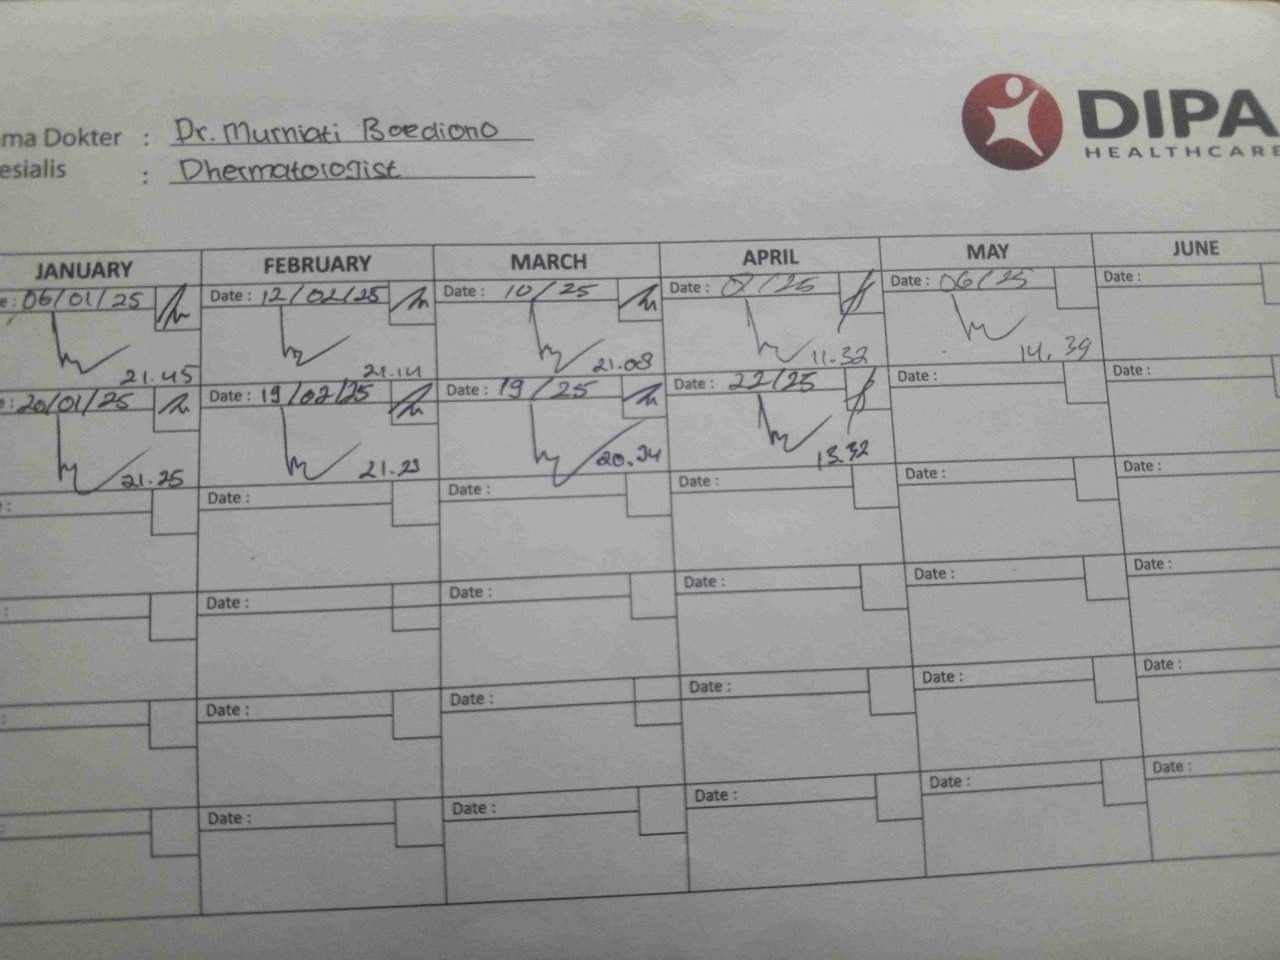 ma Dokter : Dr. Murniati Boediono
esialis : Dhermatologist
DIPA
HEALTHCARE
JANUARY FEBRUARY MARCH APRIL MAY JUNE
e : 06/01/25 Date : 12/02/25 Date : 10/25 Date : 07/25 Date : 06/25 Date :
21.45 21.14 21.08 11.32 14.39
e : 20/01/25 Date : 19/02/25 Date : 19/25 Date : 22/25 Date : Date :
21.25 21.23 20.34 13.32
: Date : Date : Date : Date : Date :
: Date : Date : Date : Date : Date :
: Date : Date : Date : Date : Date :
: Date : Date : Date : Date : Date :